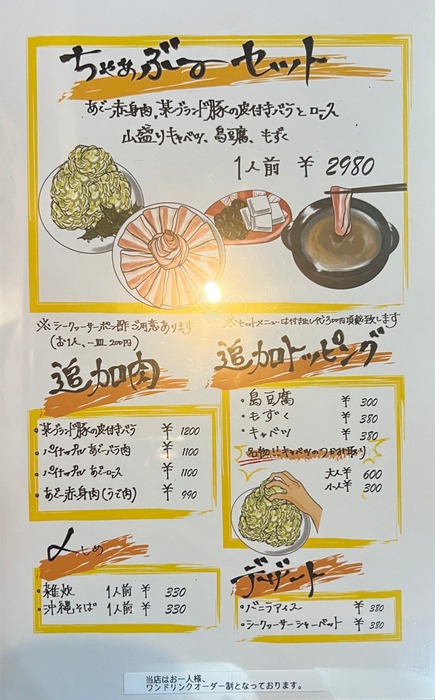 ちゃあぶーセット
あぐー赤身肉、某ブランド豚の皮付きバラとロース
山盛りキャベツ、島豆腐、もずく
1人前 ¥ 2980
※シークァーサーポン酢ご用意あります
(お1人、一皿 200円)
※セットメニューは付き出し代300円頂戴致します
追加肉
・某ブランド豚の皮付きバラ ¥ 1200
・パイナップル あぐーバラ肉 ¥ 1100
・パイナップル あぐーロース ¥ 1100
・あぐー赤身肉(うで肉) ¥ 990
追加トッピング
・島豆腐 ¥ 300
・もずく ¥ 380
・キャベツ ¥ 380
名物!!キャベツのつかみ取り
大人 ¥ 600
小人 ¥ 300
〆
・雑炊 1人前 ¥ 330
・沖縄そば 1人前 ¥ 330
デザート
・バニラアイス ¥ 380
・シークァーサーシャーベット ¥ 380
当店はお一人様、
ワンドリンクオーダー制となっております。